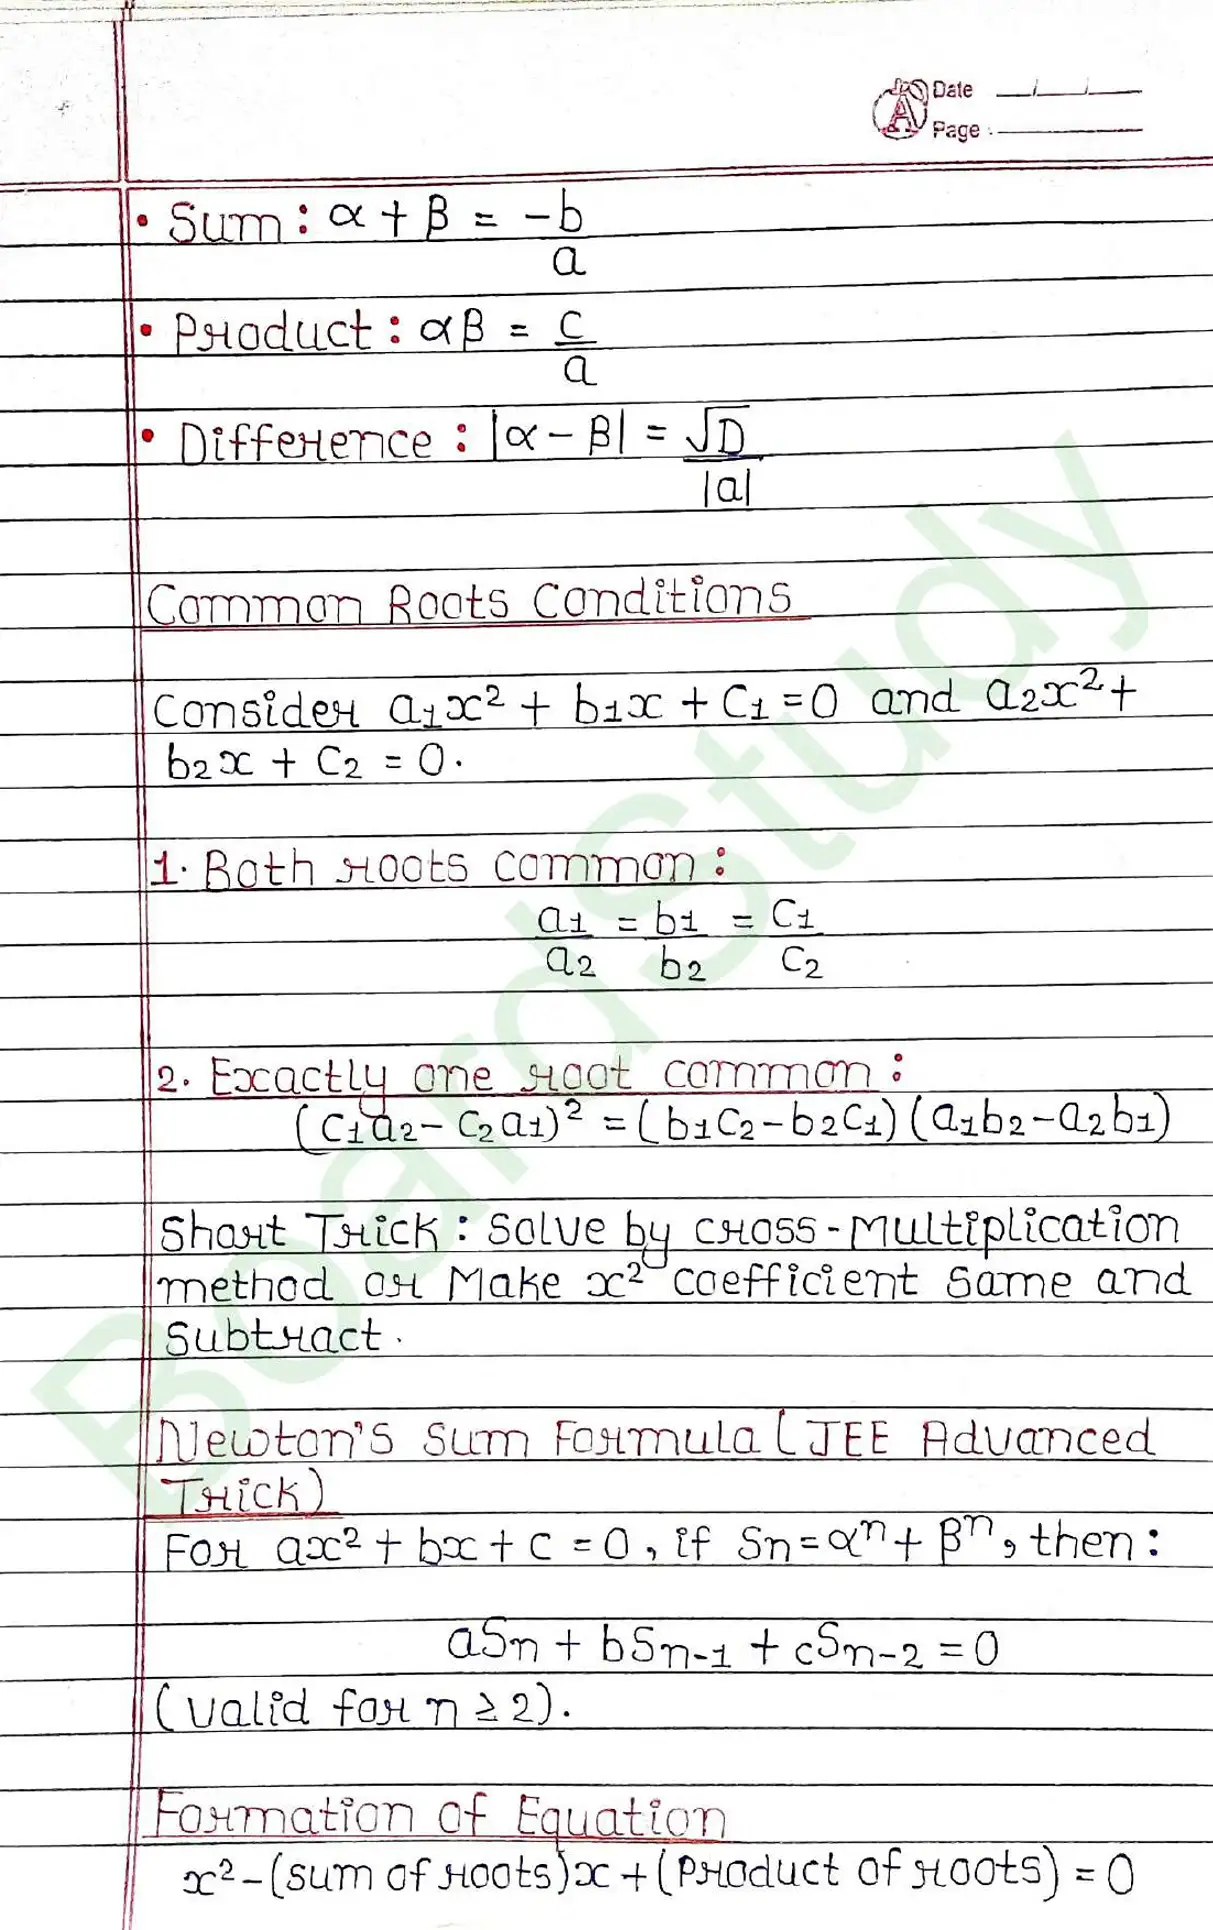 Date __/__/__
Page : ______
• Sum : α + β = -b/a
• Product : αβ = c/a
• Difference : |α - β| = √D/|a|
Common Roots Conditions
Consider a₁x² + b₁x + C₁ = 0 and a₂x² +
b₂x + C₂ = 0.
1. Both roots common :
a₁/a₂ = b₁/b₂ = C₁/C₂
2. Exactly one root common :
(C₁a₂ - C₂a₁)² = (b₁C₂ - b₂C₁) (a₁b₂ - a₂b₁)
Short Trick : Solve by cross - Multiplication
method or Make x² coefficient Same and
Subtract.
Newton's Sum Formula (JEE Advanced
Trick)
For ax² + bx + c = 0, if Sn = αⁿ + βⁿ, then :
aSn + bSn-1 + cSn-2 = 0
(valid for n ≥ 2).
Formation of Equation
x² - (sum of roots)x + (Product of roots) = 0
BoardStudy